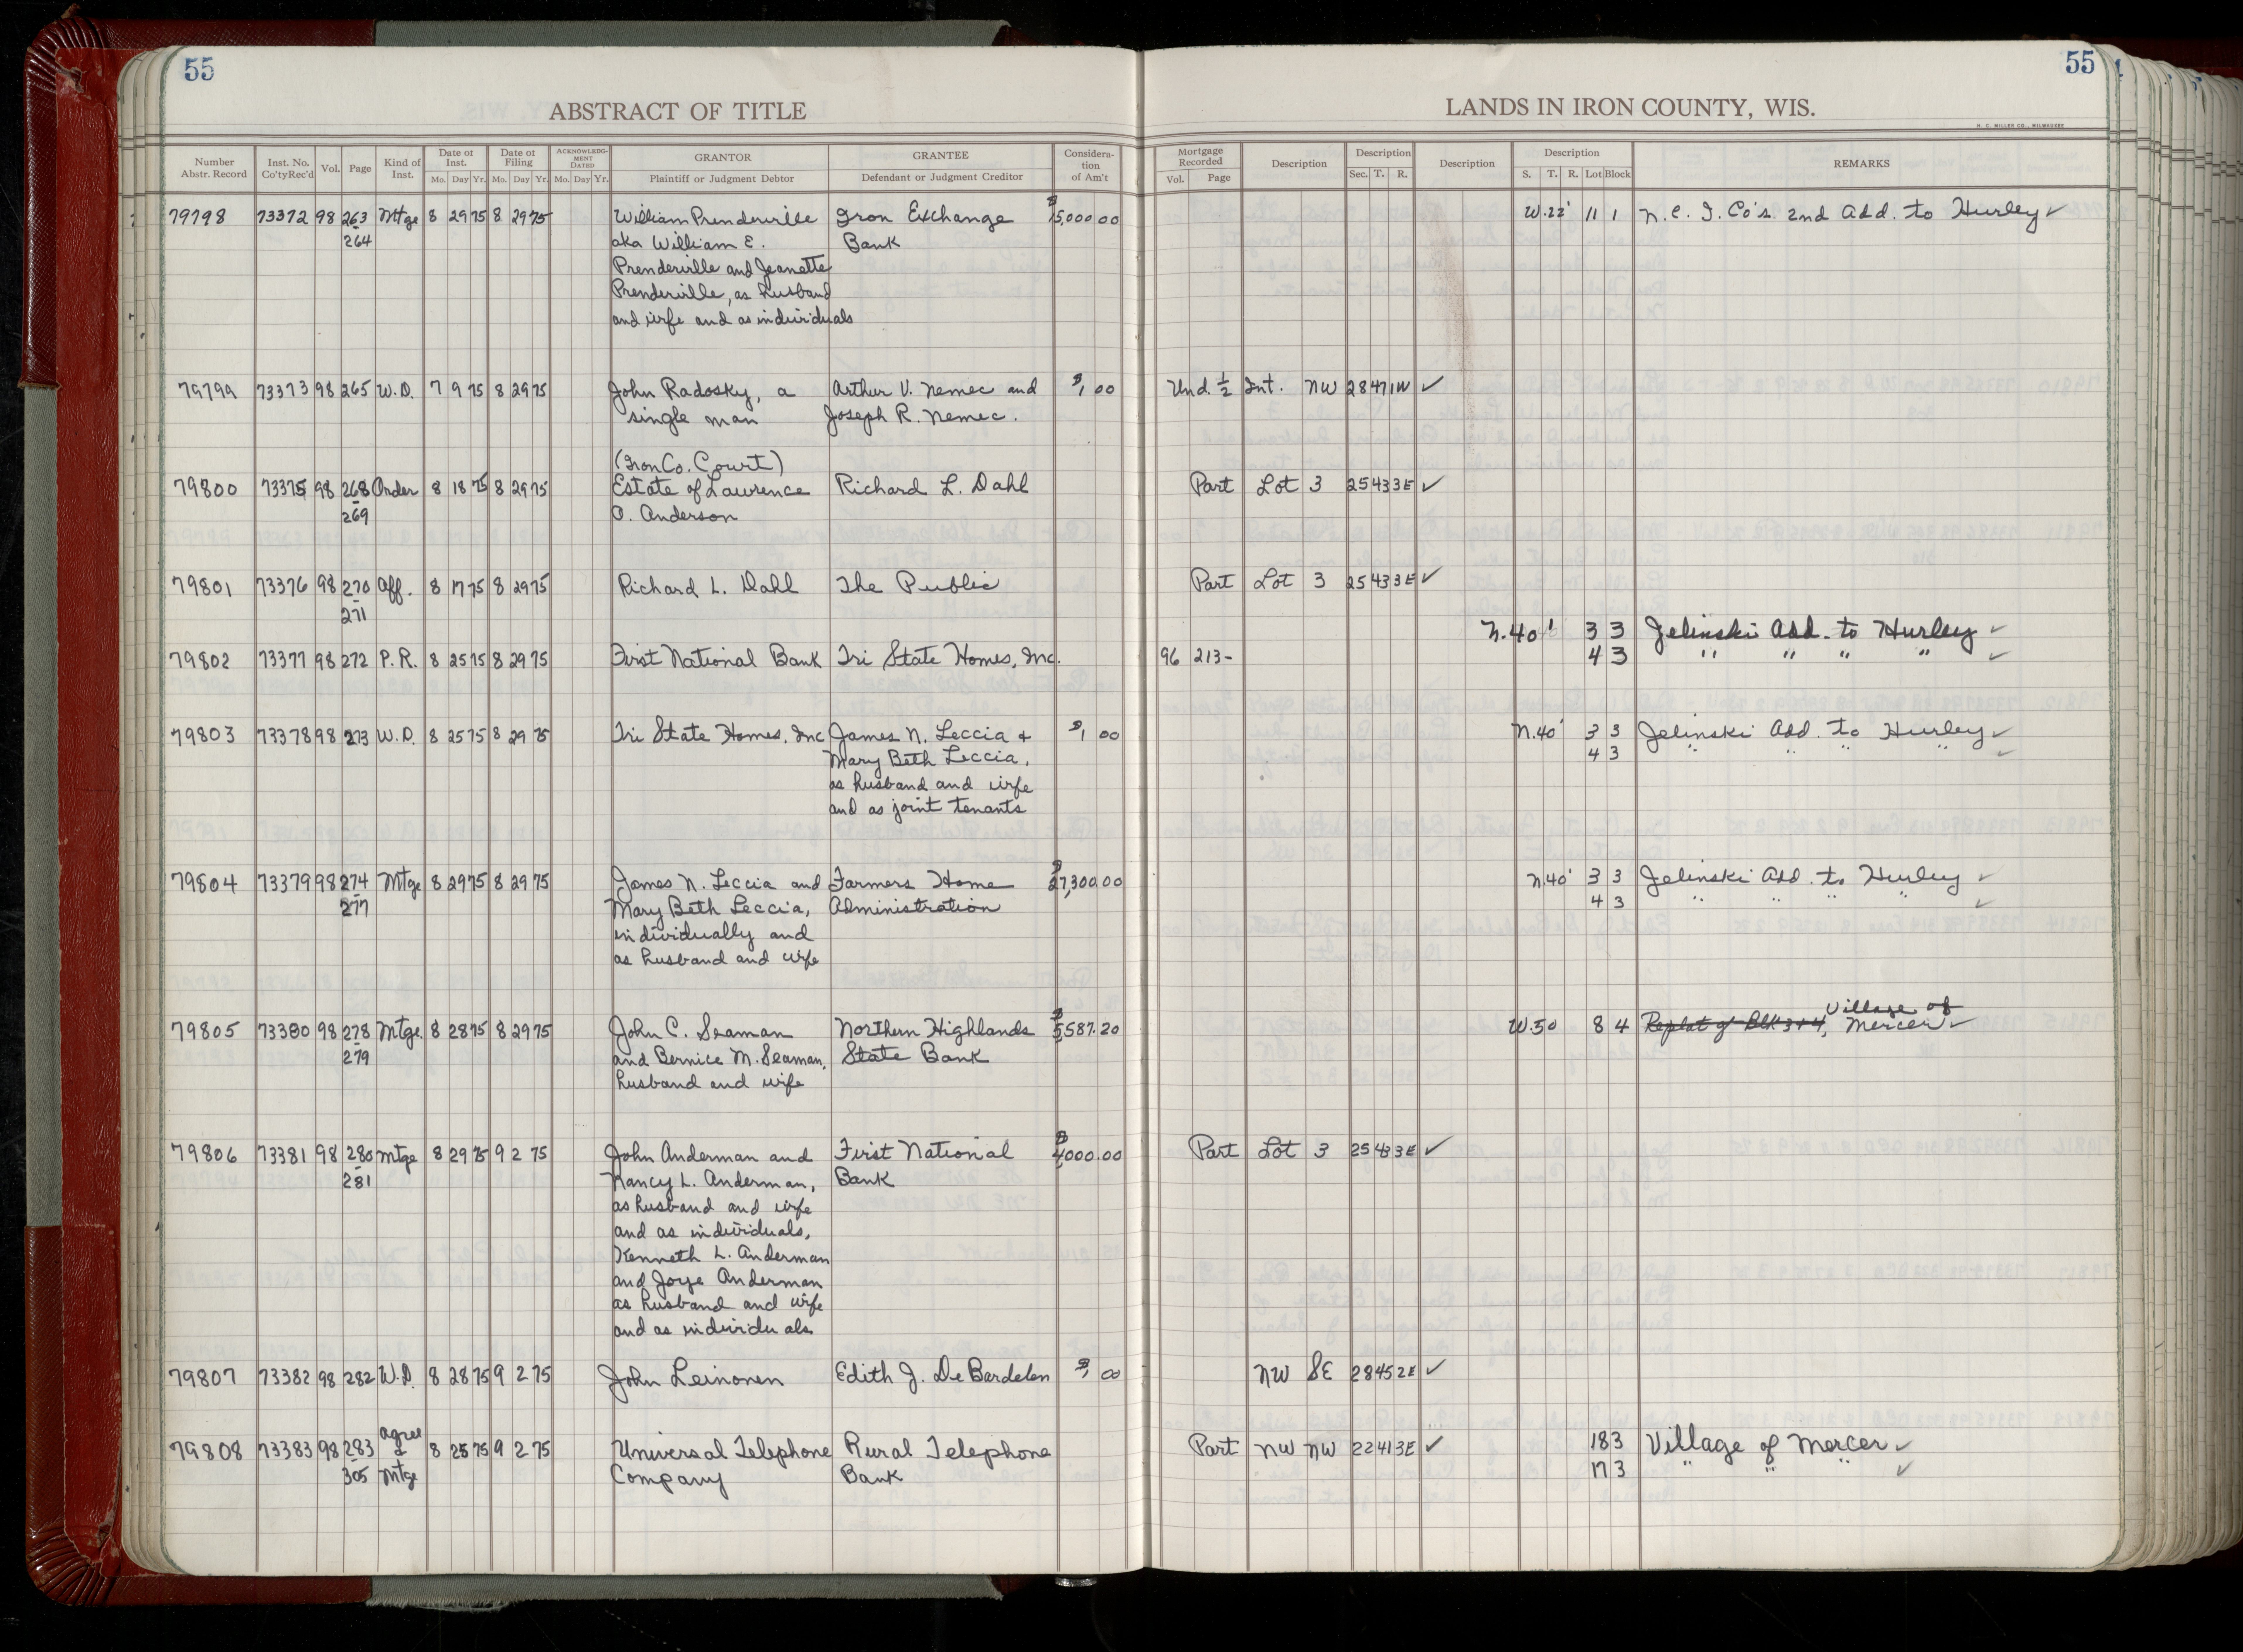 55
55
ABSTRACT OF TITLE
LANDS IN IRON COUNTY, WIS.
H. C. MILLER CO., MILWAUKEE
Number Abstr. Record
Inst. No. Co'tyRec'd
Vol.
Page
Kind of Inst.
Date of Inst. Mo. Day Yr.
Date of Filing Mo. Day Yr.
ACKNOWLEDG-MENT DATED Mo. Day Yr.
GRANTOR Plaintiff or Judgment Debtor
GRANTEE Defendant or Judgment Creditor
Considera-tion of Am't
Mortgage Recorded Vol. Page
Description
Description Sec. T. R.
Description
Description S. T. R. Lot Block
REMARKS
79798 73372 98 263 Mtge 8 29 75 8 29 75 William Prenderville Iron Exchange $15,000 00 W.22' 11 1 N.C. I. Co's. 2nd Add. to Hurley ✓
264 aka William E. Bank
Prenderville and Jeanette
Prenderville, as husband
and wife and as individuals
79799 73373 98 265 W.D. 7 9 75 8 29 75 John Radosky, a Arthur V. Nemec and $1 00 Und. ½ Int. NW 28 47 1W ✓
single man Joseph R. Nemec.
(Iron Co. Court)
79800 73375 98 268 Order 8 18 75 8 29 75 Estate of Lawrence Richard L. Dahl Part Lot 3 25 43 3E ✓
269 O. Anderson
79801 73376 98 270 Aff. 8 17 75 8 29 75 Richard L. Dahl The Public Part Lot 3 25 43 3E ✓
271
N.40' 3 3 Jelinski Add. to Hurley ✓
79802 73377 98 272 P.R. 8 25 75 8 29 75 First National Bank Tri State Homes, Inc. 96 213- 4 3 " " " " ✓
79803 73378 98 273 W.D. 8 25 75 8 29 75 Tri State Homes, Inc James N. Leccia + $1 00 N.40' 3 3 Jelinski Add. to Hurley ✓
Mary Beth Leccia, 4 3 " " " " ✓
as husband and wife
and as joint tenants
79804 73379 98 274 Mtge 8 29 75 8 29 75 James N. Leccia and Farmers Home $27,300.00 N.40' 3 3 Jelinski Add. to Hurley ✓
277 Mary Beth Leccia, Administration 4 3 " " " " ✓
individually and
as husband and wife
Village of
79805 73380 98 278 Mtge. 8 28 75 8 29 75 John C. Seaman Northern Highlands $5,587.20 W.50 8 4 Replat of Blk 3+4, Mercer ✓
279 and Bernice M. Seaman, State Bank
husband and wife
79806 73381 98 280 Mtge 8 29 75 9 2 75 John Anderman and First National $4000.00 Part Lot 3 25 43 3E ✓
281 Nancy L. Anderman, Bank
as husband and wife
and as individuals,
Kenneth L. Anderman
and Joye Anderman
as husband and wife
and as individuals
79807 73382 98 282 W.D. 8 28 75 9 2 75 John Leinonen Edith J. De Bardelen $1 00 NW SE 28 45 2E ✓
Agree
79808 73383 98 283 & 8 25 75 9 2 75 Universal Telephone Rural Telephone Part NW NW 22 41 3E ✓ 18 3 Village of Mercer ✓
305 Mtge Company Bank 17 3 " " " ✓